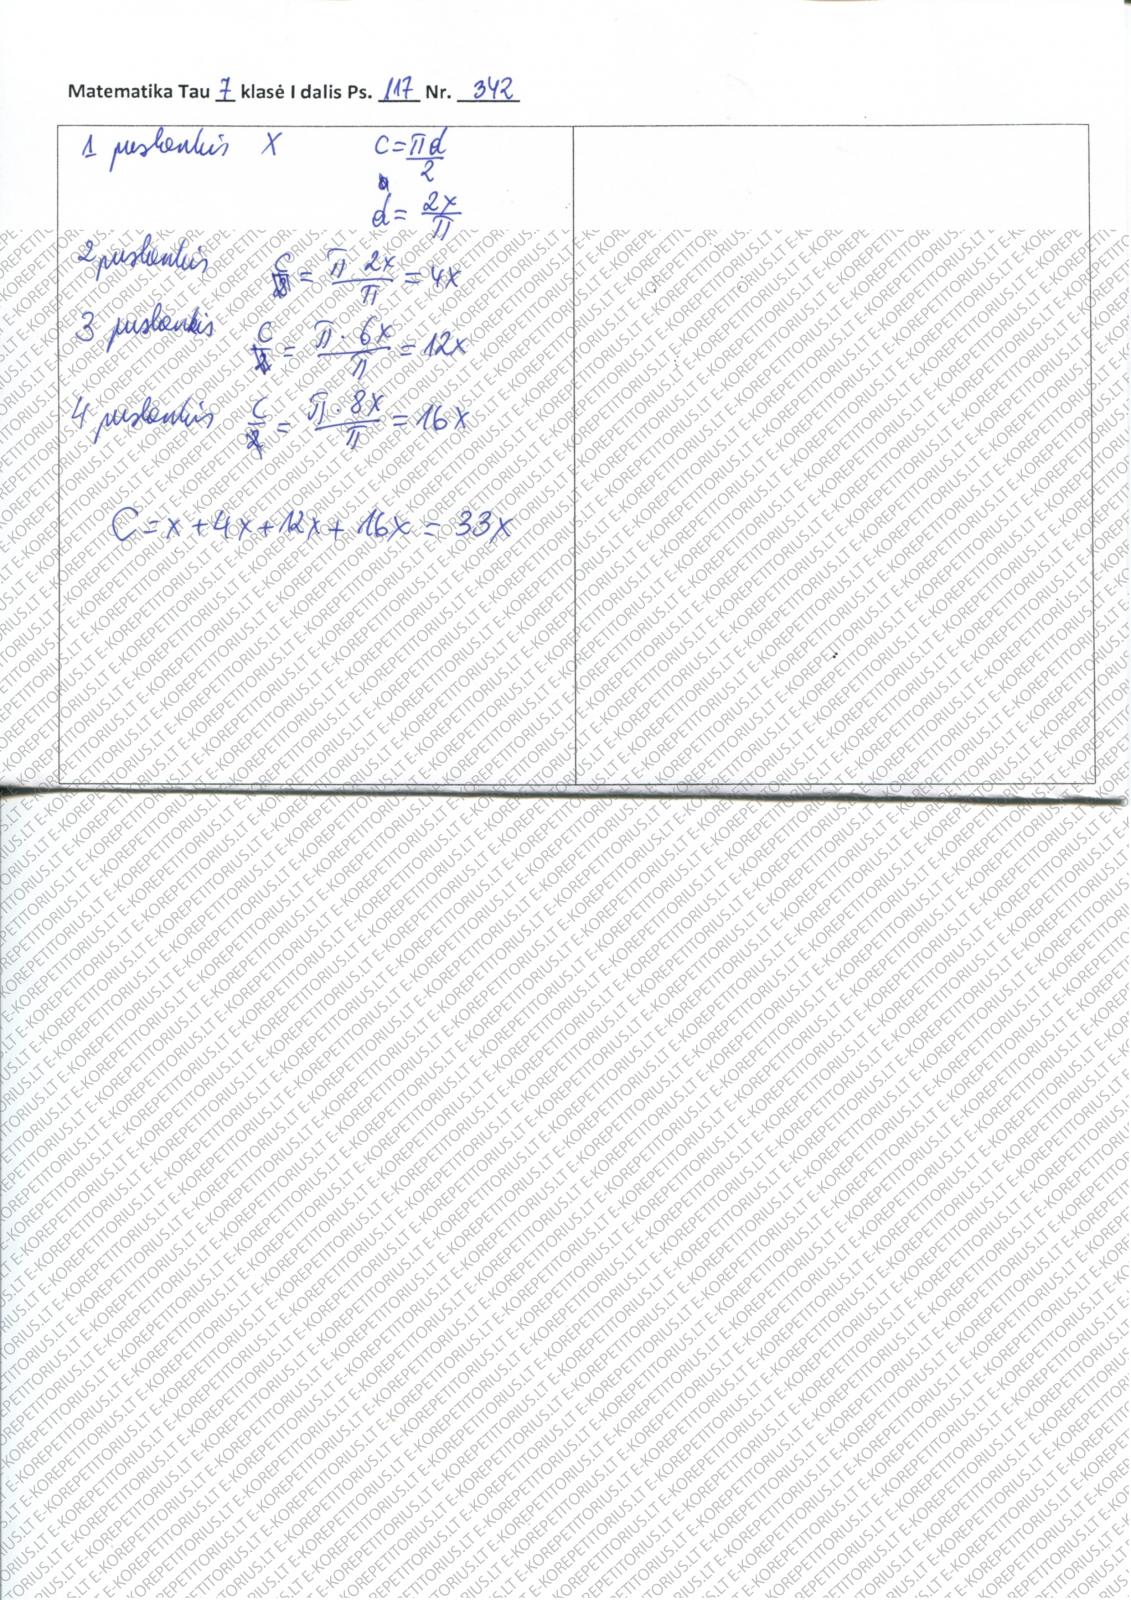 Matematika Tau 7 klasė I dalis Ps. 117 Nr. 342
1 puslankis X C = πd/2
d = 2x/π
2 puslankis C = π 2x/π = 4x
3 puslankis C = π · 6x/π = 12x
4 puslankis C = π · 8x/π = 16x
C = x + 4x + 12x + 16x = 33x
E-KOREPETITORIUS.LT